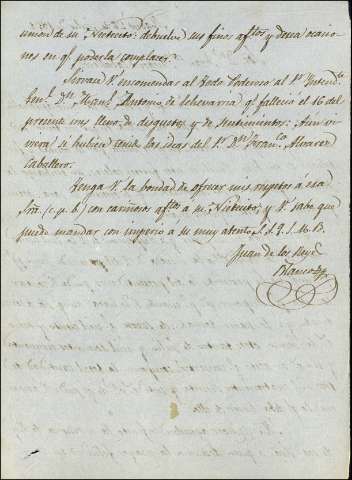 union de mi Nicticito: debuelve sus finos aftos y desea ocacio-
nes en q.e poderla complacer.
Sirvase V. encomendar al Todo Poderoso al Sr. Intend.te
Gen.l Dn. Man.l Antonio de Echevarria q.e falleció el 16 del
presente mes lleno de disgustos y de sentimientos: Aun vi-
viera si hubiera tenido las ideas del Sr. Dn. Fran.co Alvarez
Caballero.
Tenga V. la bondad de ofrecer mis respetos á esa
Sra. (c. p. b.) con cariñosos aftos a su y V. sabe que
puede mandar con imperio a su muy atento S. S. Q. S. M. B.
Juan de los Reyes
Blanco